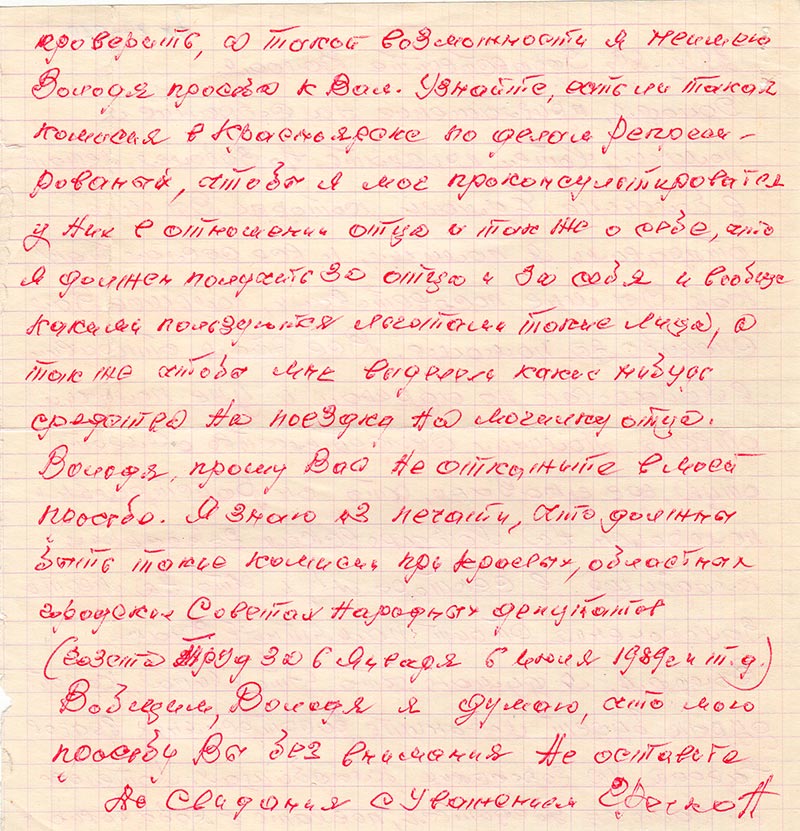 проверить, а такой возможности я неимею
Володя просьба к Вам. Узнайте, есть ли такая
комисия в Красноярске по делам Репресси-
рованых, чтобы я мог проконсультироватся
у Них в отношении отца и так же о себе, что
я должен получить за отца и за себя и вообще
какими пользуются льготами такие лица, а
так же чтобы мне выделили какие нибудь
средства на поездку на могилку отца.
Володя, прошу Вас не откажите в моей
просьбе. Я знаю из печати, что должны
быть такие комисии при краевых, областных
городских Советах народных депутатов
(газета Труд за 6 Января 6 июля 1989г и т.д.)
Вобщем, Володя я думаю, что мою
просьбу Вы без внимания не оставите
До Свидания с Уважением